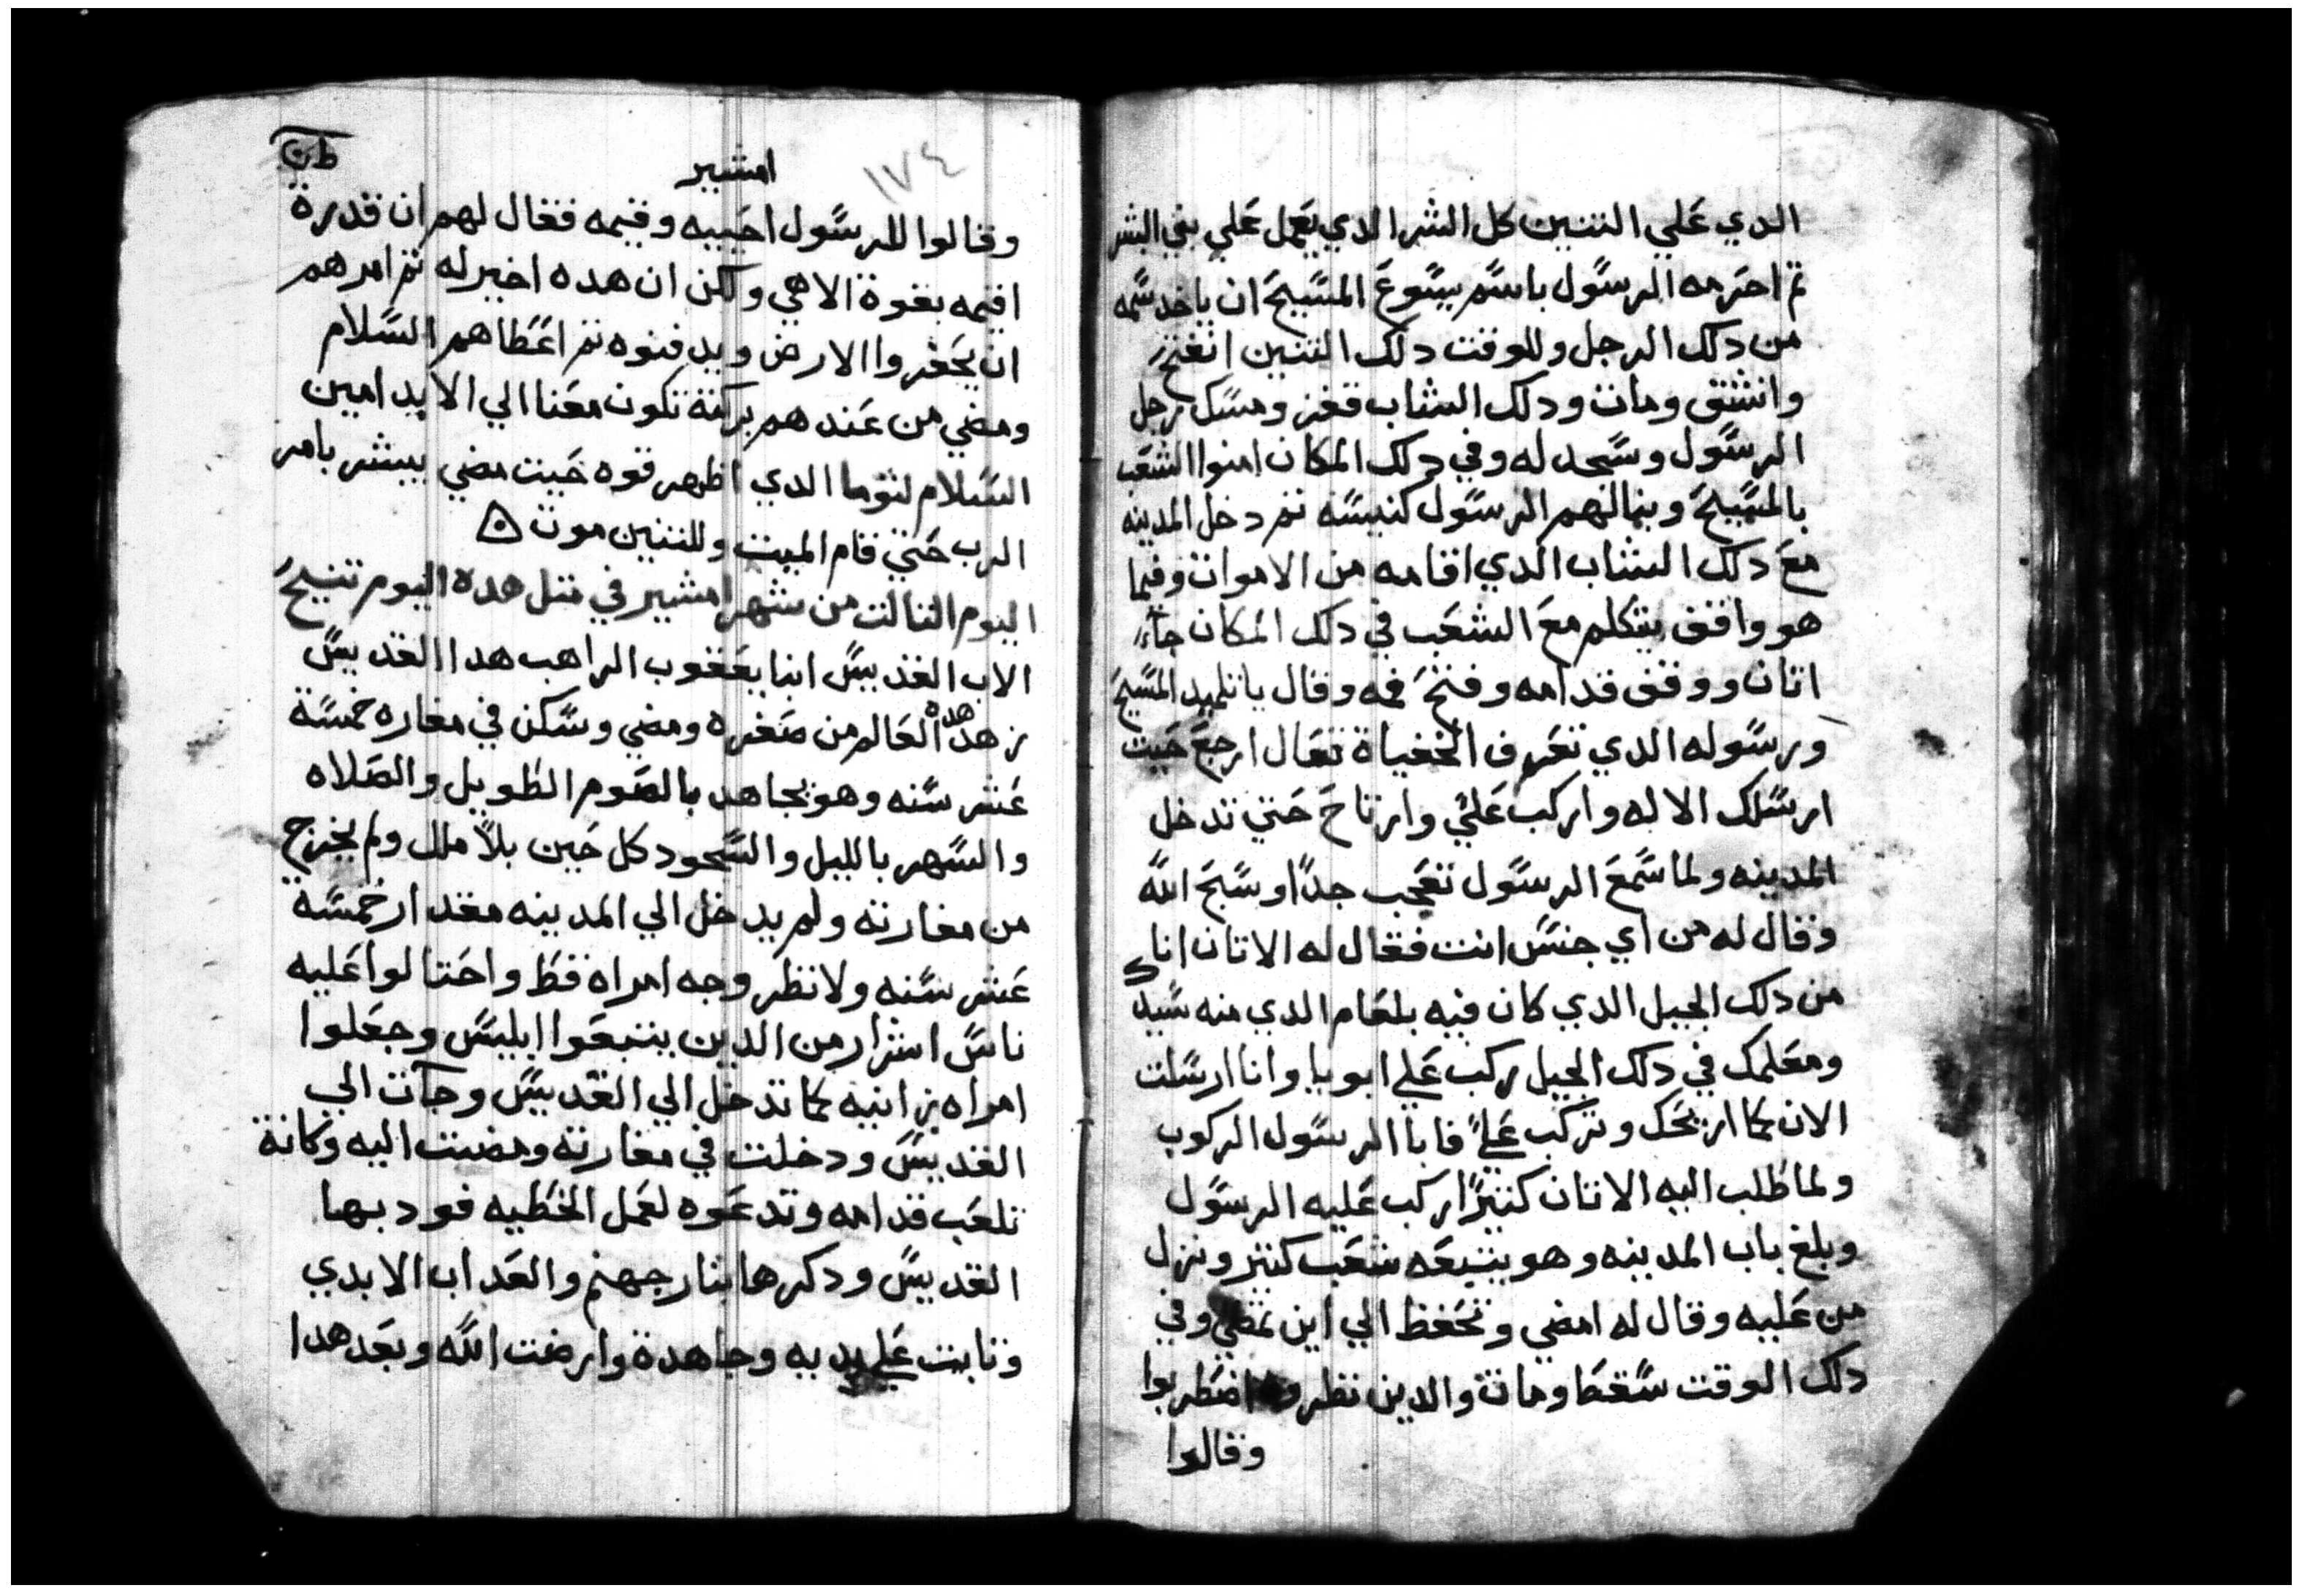 الدي علي التنين كل الشر الدي يعمل علي بني البشر
تم احرمه الرسول باسم يسوع المسيح ان ياخد سمه
من دلك الرجل وللوقت دلك التنين انتفخ
وانشق ومات ودلك الشاب قفز ومسك رجل
الرسول وسجد له وفي دلك المكان امنوا الشعب
بالمسيح وبنا لهم الرسول كنيسه تم دخل المدينه
مع دلك الشاب الدي اقامه من الاموات وفيما
هو واقف يتكلم مع الشعب في دلك المكان جاء
اتان ووقف قدامه وفتح فمه وقال يا تلميد المسيح
ورسوله الدي تعرف الخفياة تعال ارجع حيت
ارسلك الاله واركب علي وارتاح حتي تدخل
المدينه ولما سمع الرسول تعجب جدا وسبح الله
وقال له من اي جنس انت فقال له الاتان انا
من دلك الجبل الدي كان فيه بلعام الدي منه سيد
ومعلمك في دلك الجبل ركب علي ابويا وانا ارسلت
الان كما اريحك وتركب علي فابا الرسول الركوب
ولما طلب اليه الاتان كتيرا اركب عليه الرسول
وبلغ باب المدينه وهو يتبعه شعب كتير ونزل
من عليه وقال له امضي وتحفظ الي اين تمضي وفي
دلك الوقت سقط ومات والدين نظروه اضطربوا
وقالوا
امشير
١٧٤
وقالوا للرسول احييه وقيمه فقال لهم ان قدرة
اقيمه بقوة الاهي ولكن ان هده اخير له تم امرهم
ان يحفروا الارض ويدفنوه تم اعطاهم السلام
ومضي من عندهم بركته تكون معنا الي الابد امين
السلام لتوما الدي اظهر قوه حيت مضي يبشر بامر
الرب حتي قام الميت وللتنين موت
اليوم التالت من شهر امشير في متل هده اليوم تنيح
الاب القديس انبا يعقوب الراهب هدا القديس
زهد هده العالم من صغره ومضي وسكن في مغاره خمسة
عشر سنه وهو يجاهد بالصوم الطويل والصلاه
والسهر بالليل والسجود كل حين بلا ملل ولم يخرج
من مغارته ولم يدخل الي المدينه مقدار خمسة
عشر سنه ولا نظر وجه امراه قط واحتالوا عليه
ناس اشرار من الدين يتبعوا ابليس وجعلوا
امراه زانيه كما تدخل الي القديس وجآت الي
القديس ودخلت في مغارته ومضت اليه وكانة
تلعب قدامه وتدعوه لعمل الخطيه فود بها
القديس ودكرها بنار جهنم والعداب الابدي
وتابت علي يديه وجاهدة وارضت الله وبعد هدا